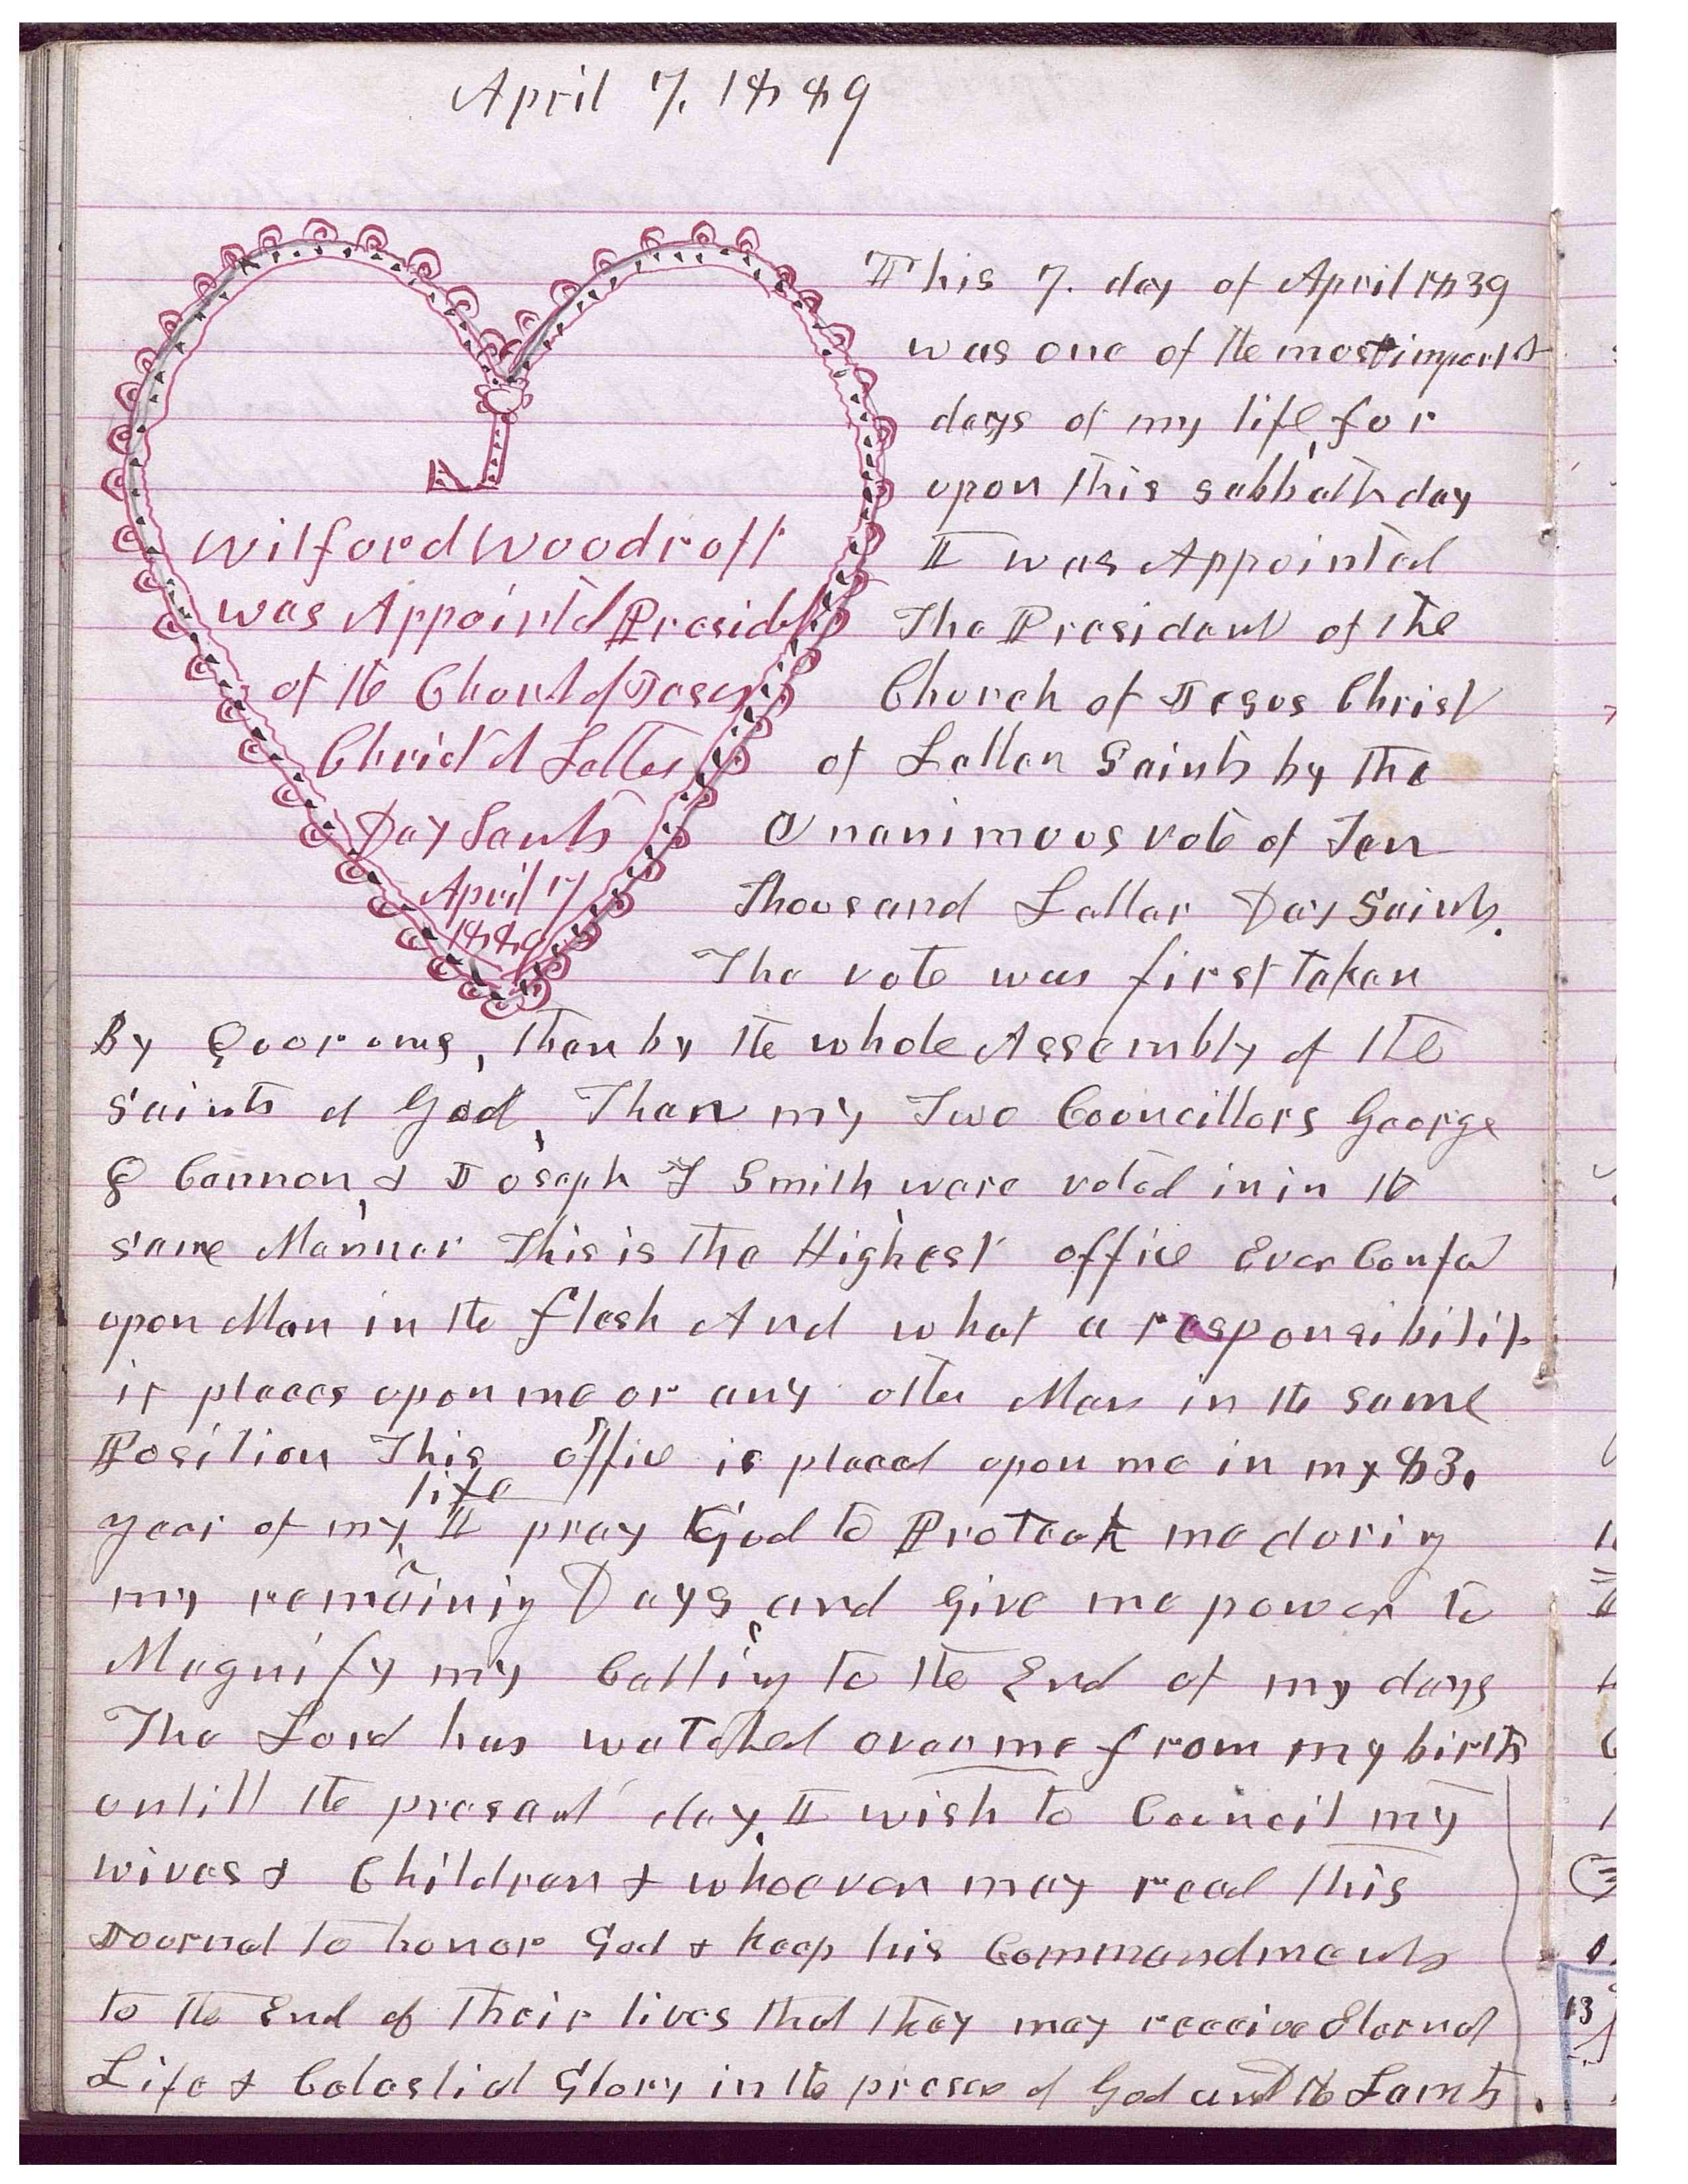 April 7, 1889
Wilford Woodruff
was Appointd Presidt
of the Church of Jesus
Christ of Latter
Day Saints
April 7
1889
This 7. day of April 1839
was one of the most importt
days of my life, for
upon this sabbath day
I was Appointed
The President of the
Church of Jesus Christ
of Latter Saints by the
Unanimous vote of Ten
Thousand Latter Day Saints.
The vote was first taken
By Quorums, then by the whole Assembly of the
Saints of God, Then my Two Councillors George
Q Cannon, & Joseph F Smith, were voted in in the
same Manner This is the Highest office Ever Confered
upon Man in the flesh And what a responsibility
it places upon me or any other Man in the same
Position This office is placed upon me in my 83.
year of my life I pray God to Protect me during
my remaining Days, and give me power to
Magnify my Calling to the End of my days
The Lord has watched over me from my birth
untill the present day. I wish to Councel my
wives & Children & whoever may read this
Journal to honor God & keep his Commandments
to the End of their lives that they may receive Eternal
Life & Celestial Glory in the presence of God and the Lamb.
13